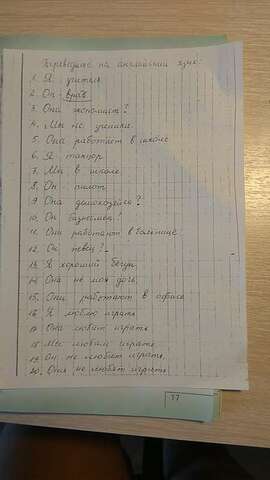 Переведите на английский язык:
1. Я учитель
2. Он врач
3. Она экономист?
4. Мы не ученики.
5. Она работает в школе
6. Я танцор
7. Мы в школе
8. Он пилот
9. Она домохозяйка?
10. Он бизнесмен?
11. Они работают в больнице
12. Он певец?
13. Я хороший бегун.
14. Она не моя дочь.
15. Они работают в офисе
16. Я люблю играть
17. Она любит играть
18. Мы любим играть
19. Он не любит играть.
20. Она не любит играть
17